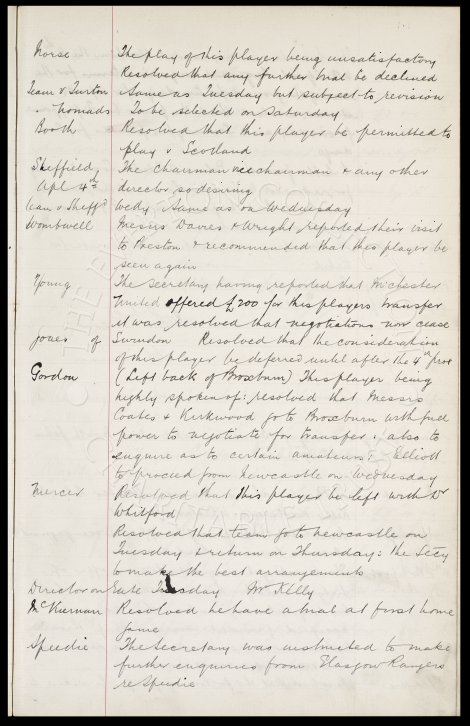 Morse The play of this player being unsatisfactory
Resolved that any further trial be declined
Team v Turton Same as Tuesday but subject to revision
" Nomads To be selected on Saturday
Booth Resolved that this player be permitted to
play v Scotland
Sheffield, The chairman vice chairman & any other
Apl 4th director so desiring
Team v Sheffd Wedy Same as on Wednesday
Wombwell Messrs Davies & Wright reported their visit
to Preston & recommended that this player be
seen again
Young The Secretary having reported that Mchester
United offered £200 for this players transfer
it was resolved that negotiations now cease
Jones of Swindon Resolved that the consideration
of this player be deferred until after the 4th prox
Gordon (Left back of Broxburn) This player being
highly spoken of: resolved that Messrs
Coates & Kirkwood go to Broxburn with full
power to negotiate for transfer: also to
enquire as to certain amateurs: Elliott
to proceed from Newcastle on Wednesday
Mercer Resolved that this player be left with Dr
Whitford
Resolved that team go to Newcastle on
Tuesday & return on Thursday: the Secy
to make the best arrangements
Director on Gate Tuesday Mr Kelly
McKiernan Resolved he have a trial at first home
game
Speedie The Secretary was instructed to make
further enquiries from Glasgow Rangers
re Speedie